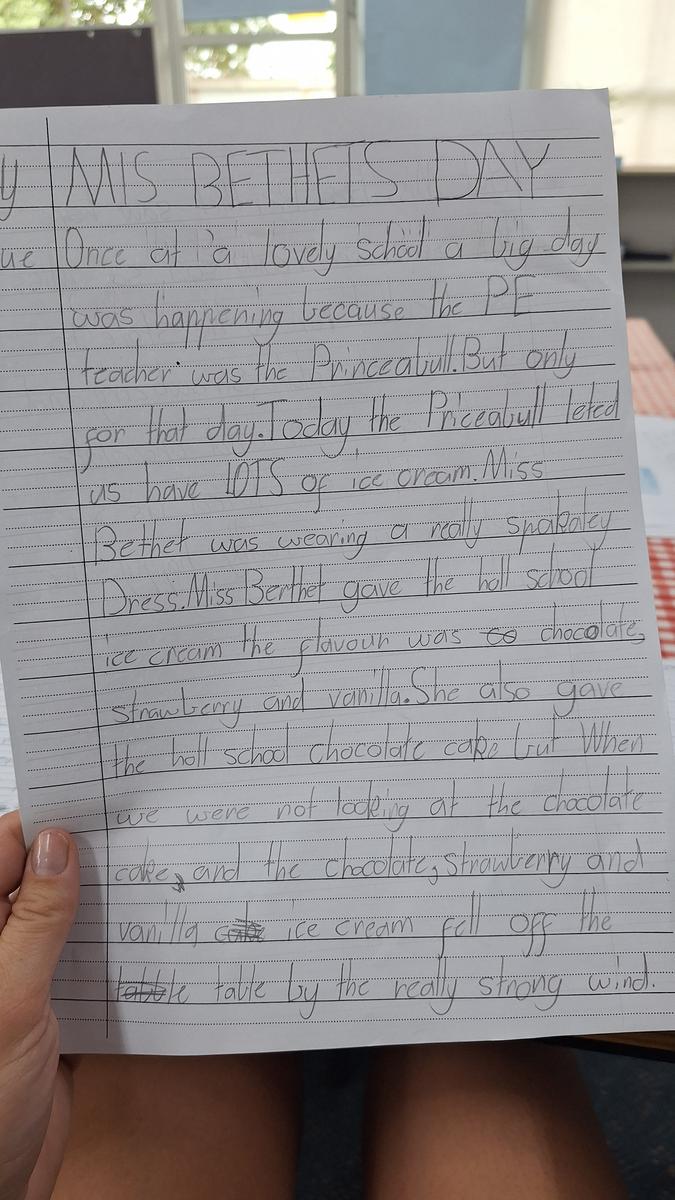 y MIS BETHETS DAY
ue Once at a lovely school a big day
was happening because the PE
teacher was the Princeabull. But only
for that day. Today the Priceabull leted
us have lOTS of ice cream. Miss
Bethet was wearing a really spakaley
Dress. Miss Berthet gave the holl school
ice cream the flavour was chocolate,
strawberry and vanilla. She also gave
the holl school chocolate cake but When
we were not looking at the chocolate
cake, and the chocolate, strawberry and
vanilla ice cream fell off the
table by the really strong wind.